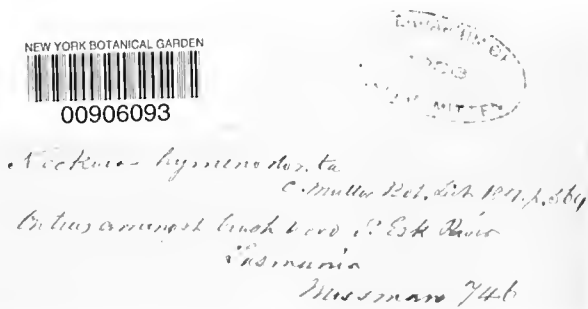 NEW YORK BOTANICAL GARDEN
00906093
MITTEN
Neckera hymenodonta
C. Muller Bot. Zeit. 1851. p. 564
On trees amongst brushwood S. Esk River
Tasmania
Mossman 746